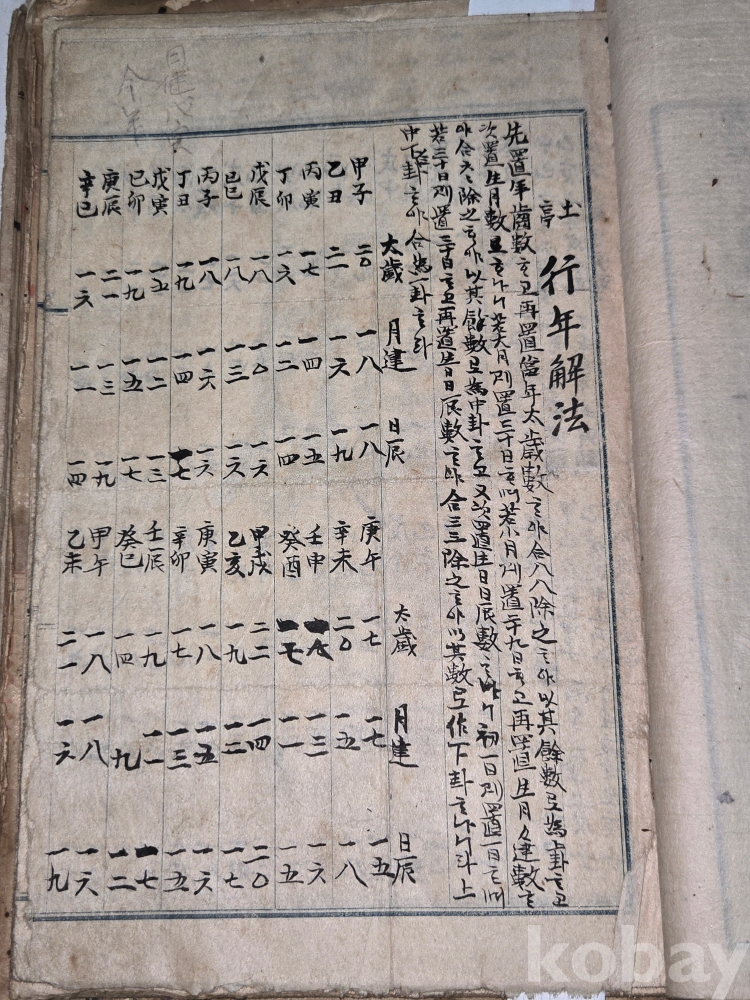 土亭 行年解法
先置年齒數ᄒᆞ고再置當年太歲數ᄒᆞ야合八八除之ᄒᆞ야以其餘數로為上卦ᄒᆞ고
次置生月數로ᄒᆞ나니若大月則置三十日ᄒᆞ며若小月則置二十九日ᄒᆞ고再置生月月建數ᄒᆞ
야合六六除之ᄒᆞ야以其餘數로為中卦ᄒᆞ고又次置生日日辰數ᄒᆞ나니初一日則置一日ᄒᆞ며
若三十日則置三十日ᄒᆞ고再置生日日辰數ᄒᆞ야合三三除之ᄒᆞ야以其數로作下卦ᄒᆞ나니라上
中下卦ᄒᆞ야合為一卦ᄒᆞ라
太歲 月建 日辰 太歲 月建 日辰
甲子 二〇 一八 一八 庚午 一七 一七 一五
乙丑 二一 一六 一九 辛未 二〇 一五 一八
丙寅 一七 一四 一五 壬申 一八 一三 一六
丁卯 一六 一二 一四 癸酉 一七 一一 一五
戊辰 一八 一〇 一六 甲戌 二二 一四 二〇
己巳 一八 一三 一六 乙亥 一九 一二 一七
丙子 一八 一六 一六 庚寅 一八 一五 一六
丁丑 一九 一四 一七 辛卯 一七 一三 一五
戊寅 一五 一二 一三 壬辰 一九 一一 一七
己卯 一九 一五 一七 癸巳 一四 九 一二
庚辰 二一 一三 一九 甲午 一八 一八 一六
辛巳 一六 一一 一四 乙未 二一 一六 一九
今年
kobay